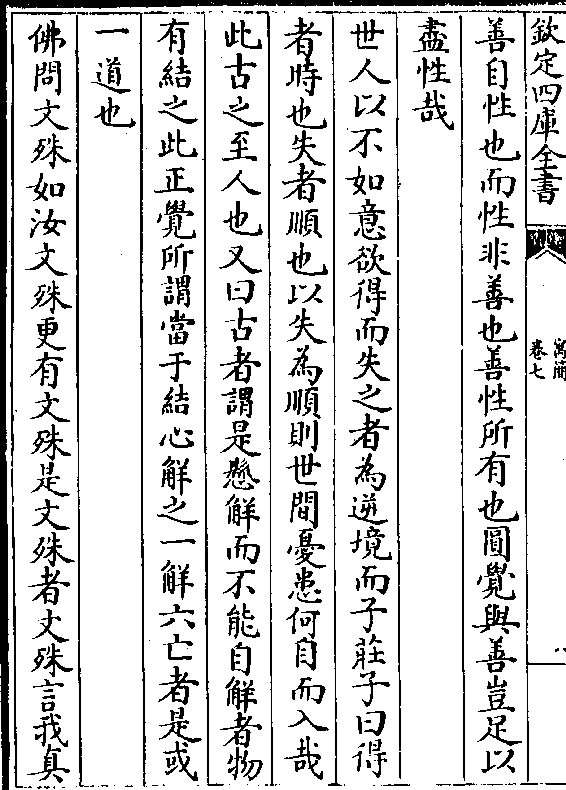 欽定四庫全書
寓簡
卷七
八
善自性也而性非善也善性所有也圓覺與善豈足以
盡性哉
世人以不如意欲得而失之者為逆境而子莊子曰得
者時也失者順也以失為順則世間憂患何自而入哉
此古之至人也又曰古者謂是懸解而不能自解者物
有結之此正覺所謂當于結心解之一解六亡者是或
一道也
佛問文殊如汝文殊更有文殊是文殊者文殊言我真